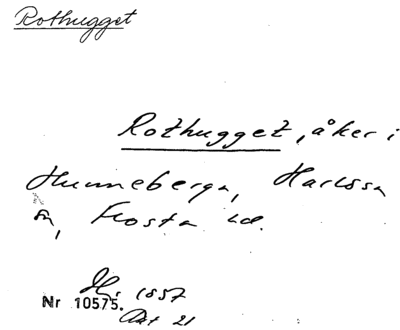 Rothugget
Rothugget, åker i
Hunneberga, Harlösa
sn, Frosta hd.
1857
Nr 10575. Akt 21